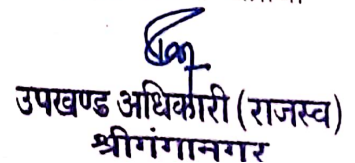 उपखण्ड अधिकारी (राजस्व)
श्रीगंगानगर